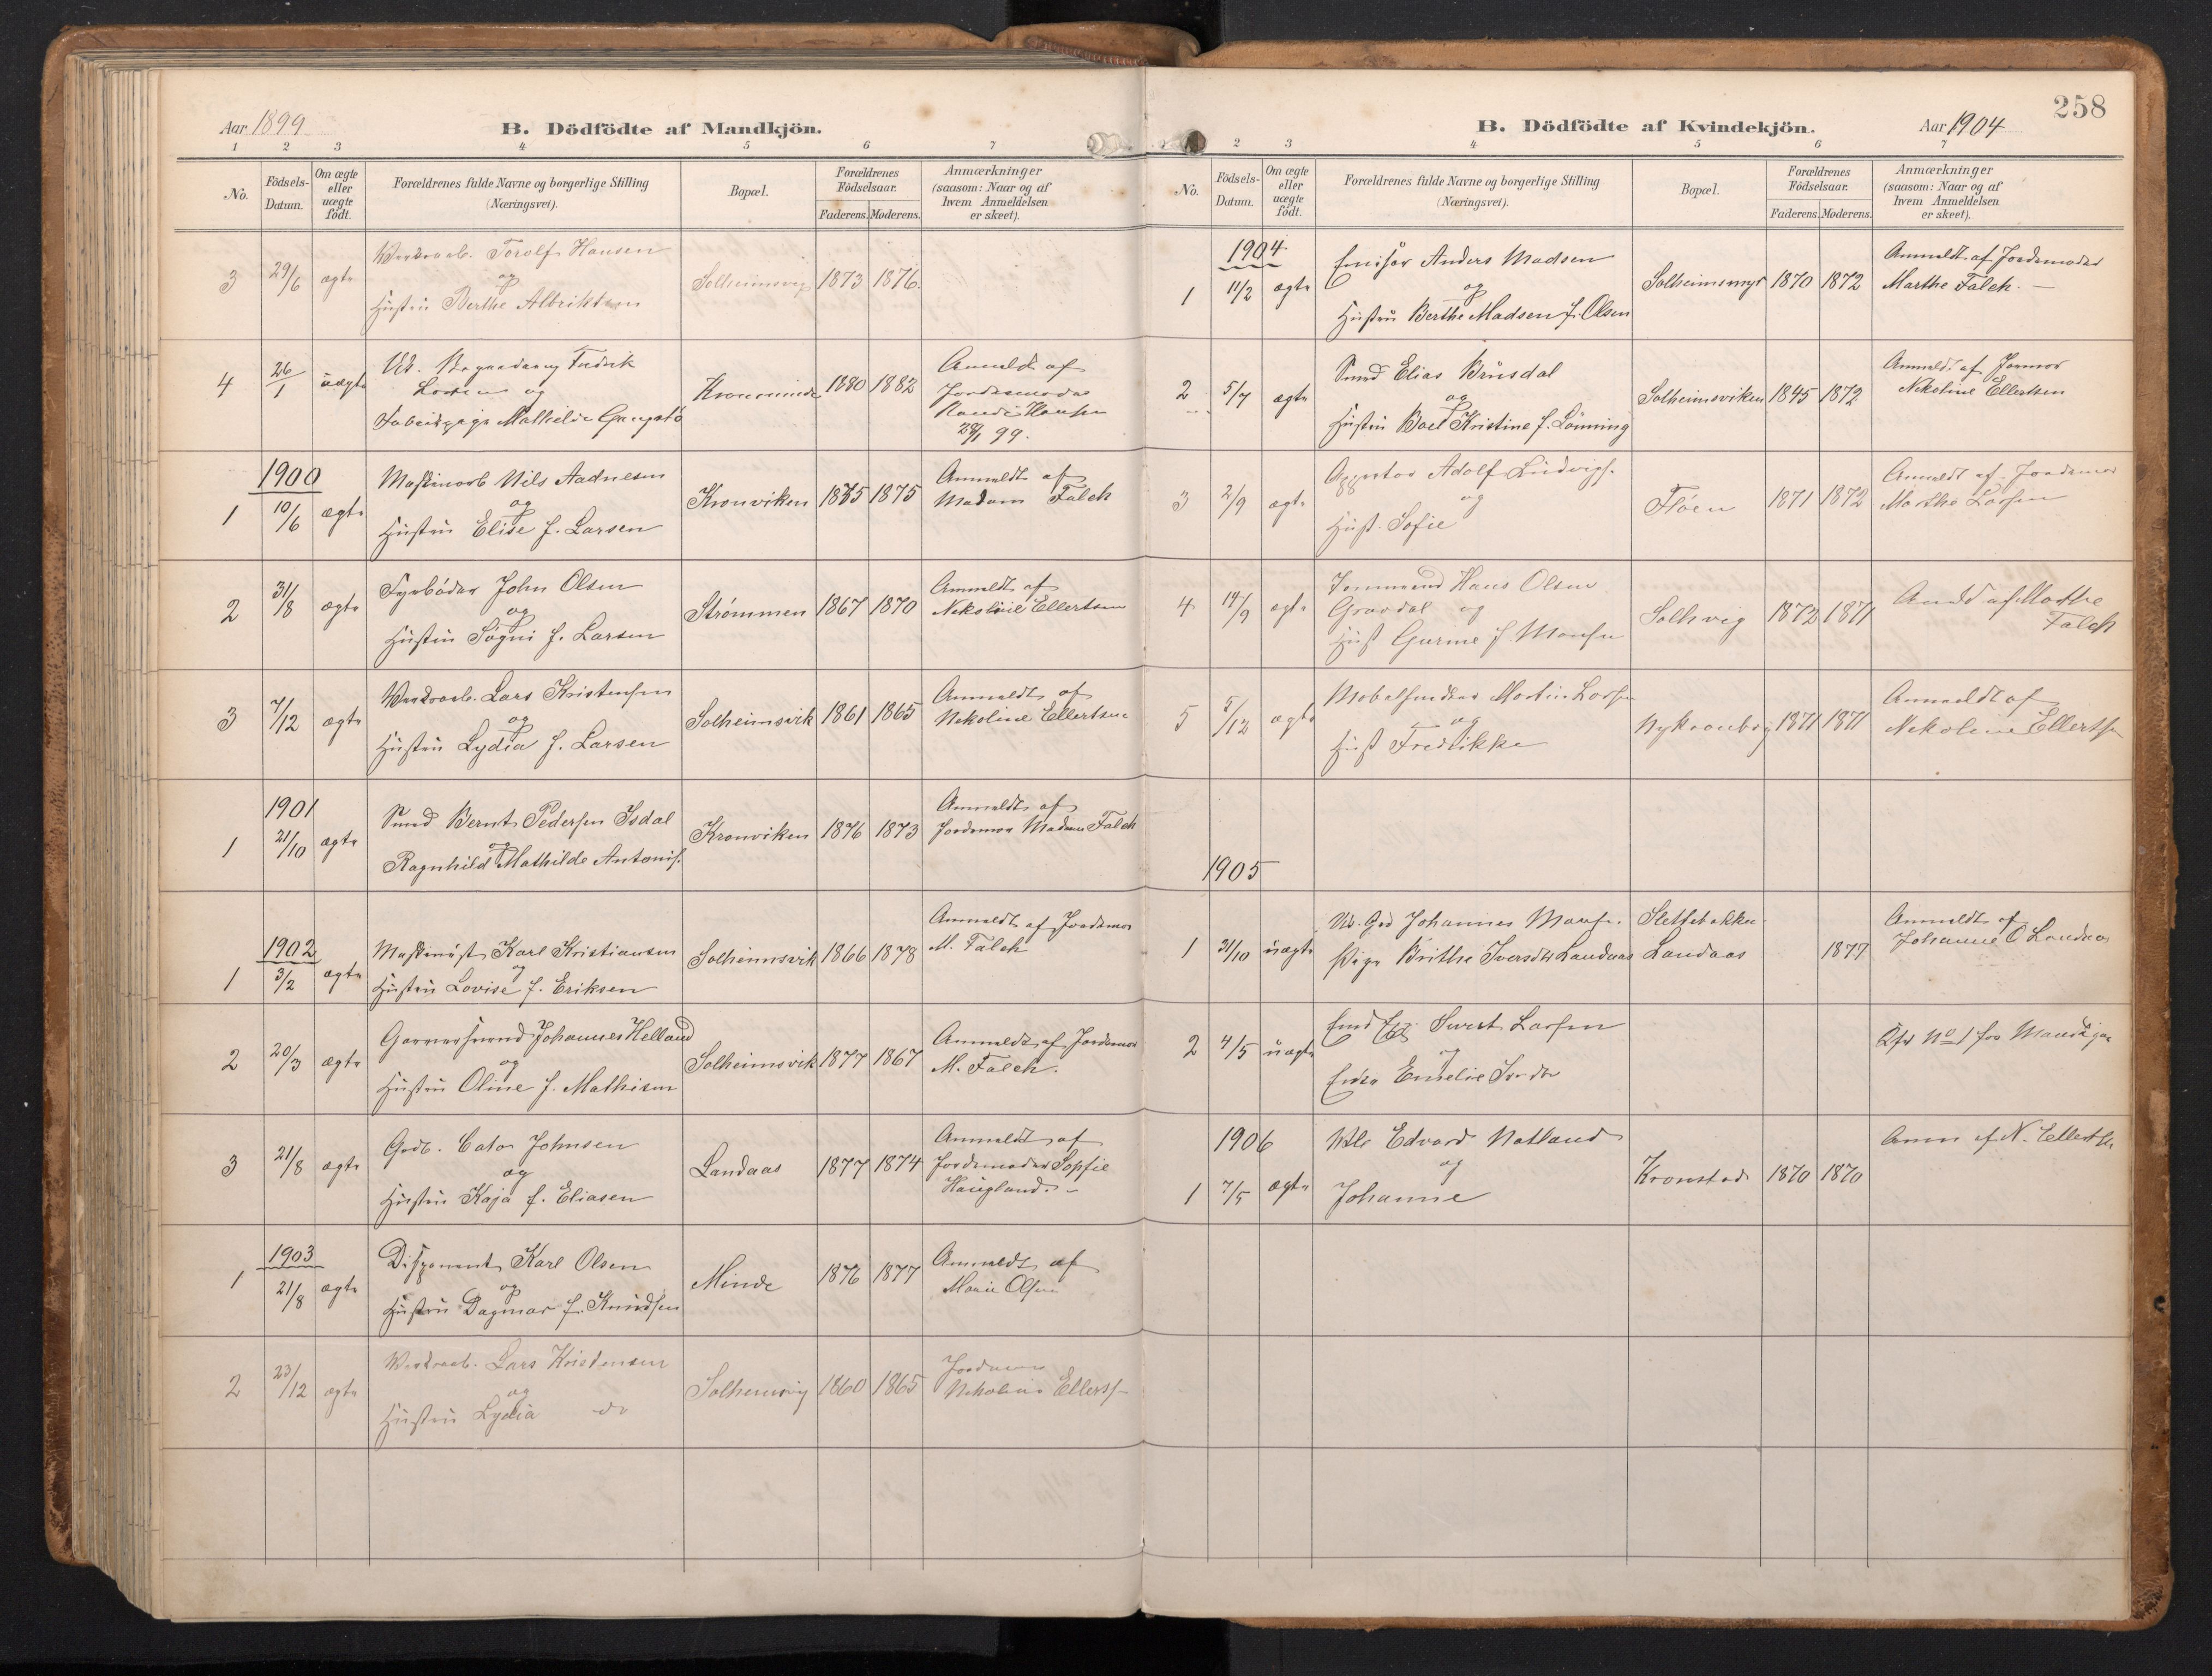 Aar 1899
B. Dödfödte af Mandkjön.
1 2 3 4 5 6 7
No.
Födsels-
Datum.
Om ægte
eller
uægte
födt.
Forældrenes fulde Navne og borgerlige Stilling
(Næringsvei).
Bopæl.
Forældrenes
Födselsaar.
Faderens. Moderens.
Anmærkninger
(saasom: Naar og af
hvem Anmeldelsen
er skeet).
Torolf Hansen
3 29/6 ægte og Solheimsvig 1873 1876.
Hustru Berthe Albriktsen
Fredrik Anmeldt af
4 26/1 uægte og 1880 1882 Jordemoder
Mathilde Hansen
28/1 99.
1900 Nils Aadnesen Anmeldt af
1 10/6 ægte og Kronviken 1875 Madam Falch
Hustru Elise f. Larsen
Fyrböder John Olsen Anmeldt af
2 31/8 ægte og Strømmen 1867 1870 Nikoline Ellertsen
Hustru Søgni f. Larsen
Lars Kristensen Anmeldt af
3 7/12 ægte og Solheimsvik 1861 1865 Nikoline Ellertsen
Hustru Lydia f. Larsen
1901 Smed Bernt Pedersen Isdal Anmeldt af
1 21/10 ægte og Kronviken 1876 1873 Jordemor Madam Falch
Ragnhild Mathilde Antonis.
Anmeldt af Jordemor
1902 Karl Kristiansen Solheimsvik 1866 1878 M. Falch
1 3/2 ægte og
Hustru Lovise f. Eriksen
Garversvend Johannes Helland Anmeldt af Jordemor
2 20/3 ægte og Solheimsvik 1877 1867 M. Falch.
Hustru Oline f. Mathisen
Johnsen Anmeldt af
3 21/8 ægte og Landaas 1877 1874 Jordemoder Sopfie
Hustru Kaja f. Eliasen Haugland. -
1903 Disponent Karl Olsen Anmeldt af
1 21/8 ægte og Minde 1876 1877 Marie Olsen
Hustru Dagmar f. Knudsen
Lars Kristensen Jordmor
2 23/12 ægte og Solheimsvig 1860 1865 Nikoline Ellerts-
Hustru Lydia do
258
B. Dödfödte af Kvindekjön.
Aar 1904
2 3 4 5 6 7
No.
Födsels-
Datum.
Om ægte
eller
uægte
födt.
Forældrenes fulde Navne og borgerlige Stilling
(Næringsvei).
Bopæl.
Forældrenes
Födselsaar.
Faderens. Moderens.
Anmærkninger
(saasom: Naar og af
hvem Anmeldelsen
er skeet).
1904 Anders Madsen Anmeldt af Jordemoder
1 11/2 ægte og Solheimsmyr 1870 1872 Marthe Falch. -
Hustru Berthe Madsen f. Olsen
Smed Elias Brüsdal Anmeldt af Jormor
2 5/7 ægte og Solheimsviken 1845 1872 Nikoline Ellertsen
Hustru Boel Kristine f. Lönning
Adolf Ludvigs. Anmeldt af Jordemor
3 2/9 ægte og Fløen 1871 1872 Marthe Larsen
Hust. Sofie
Tømmermd Hans Olsen Anm af Marthe
4 14/9 ægte Gravdal og Solhvig 1872 1871 Falch
Hust Gurine f Monsen
Møbelsnedker Martin Larsen Anmeldt af
5 5/12 ægte og Nykronborg 1871 1871 Nikoline Ellertsen
Hust Fredrikke
1905
Johannes Slettebakken Anmeldt af
1 31/10 uægte Pige Brithe Iversdtr Landaas Landaas 1877 Johanne O Landaas
Sivert Larsen No 1 for Mandkjøn
2 4/5 uægte og
Emelie
1906 Edvard Natland Anm af N. Ellertsen
og Kronstad 1870 1870
1 7/5 ægte Johanne